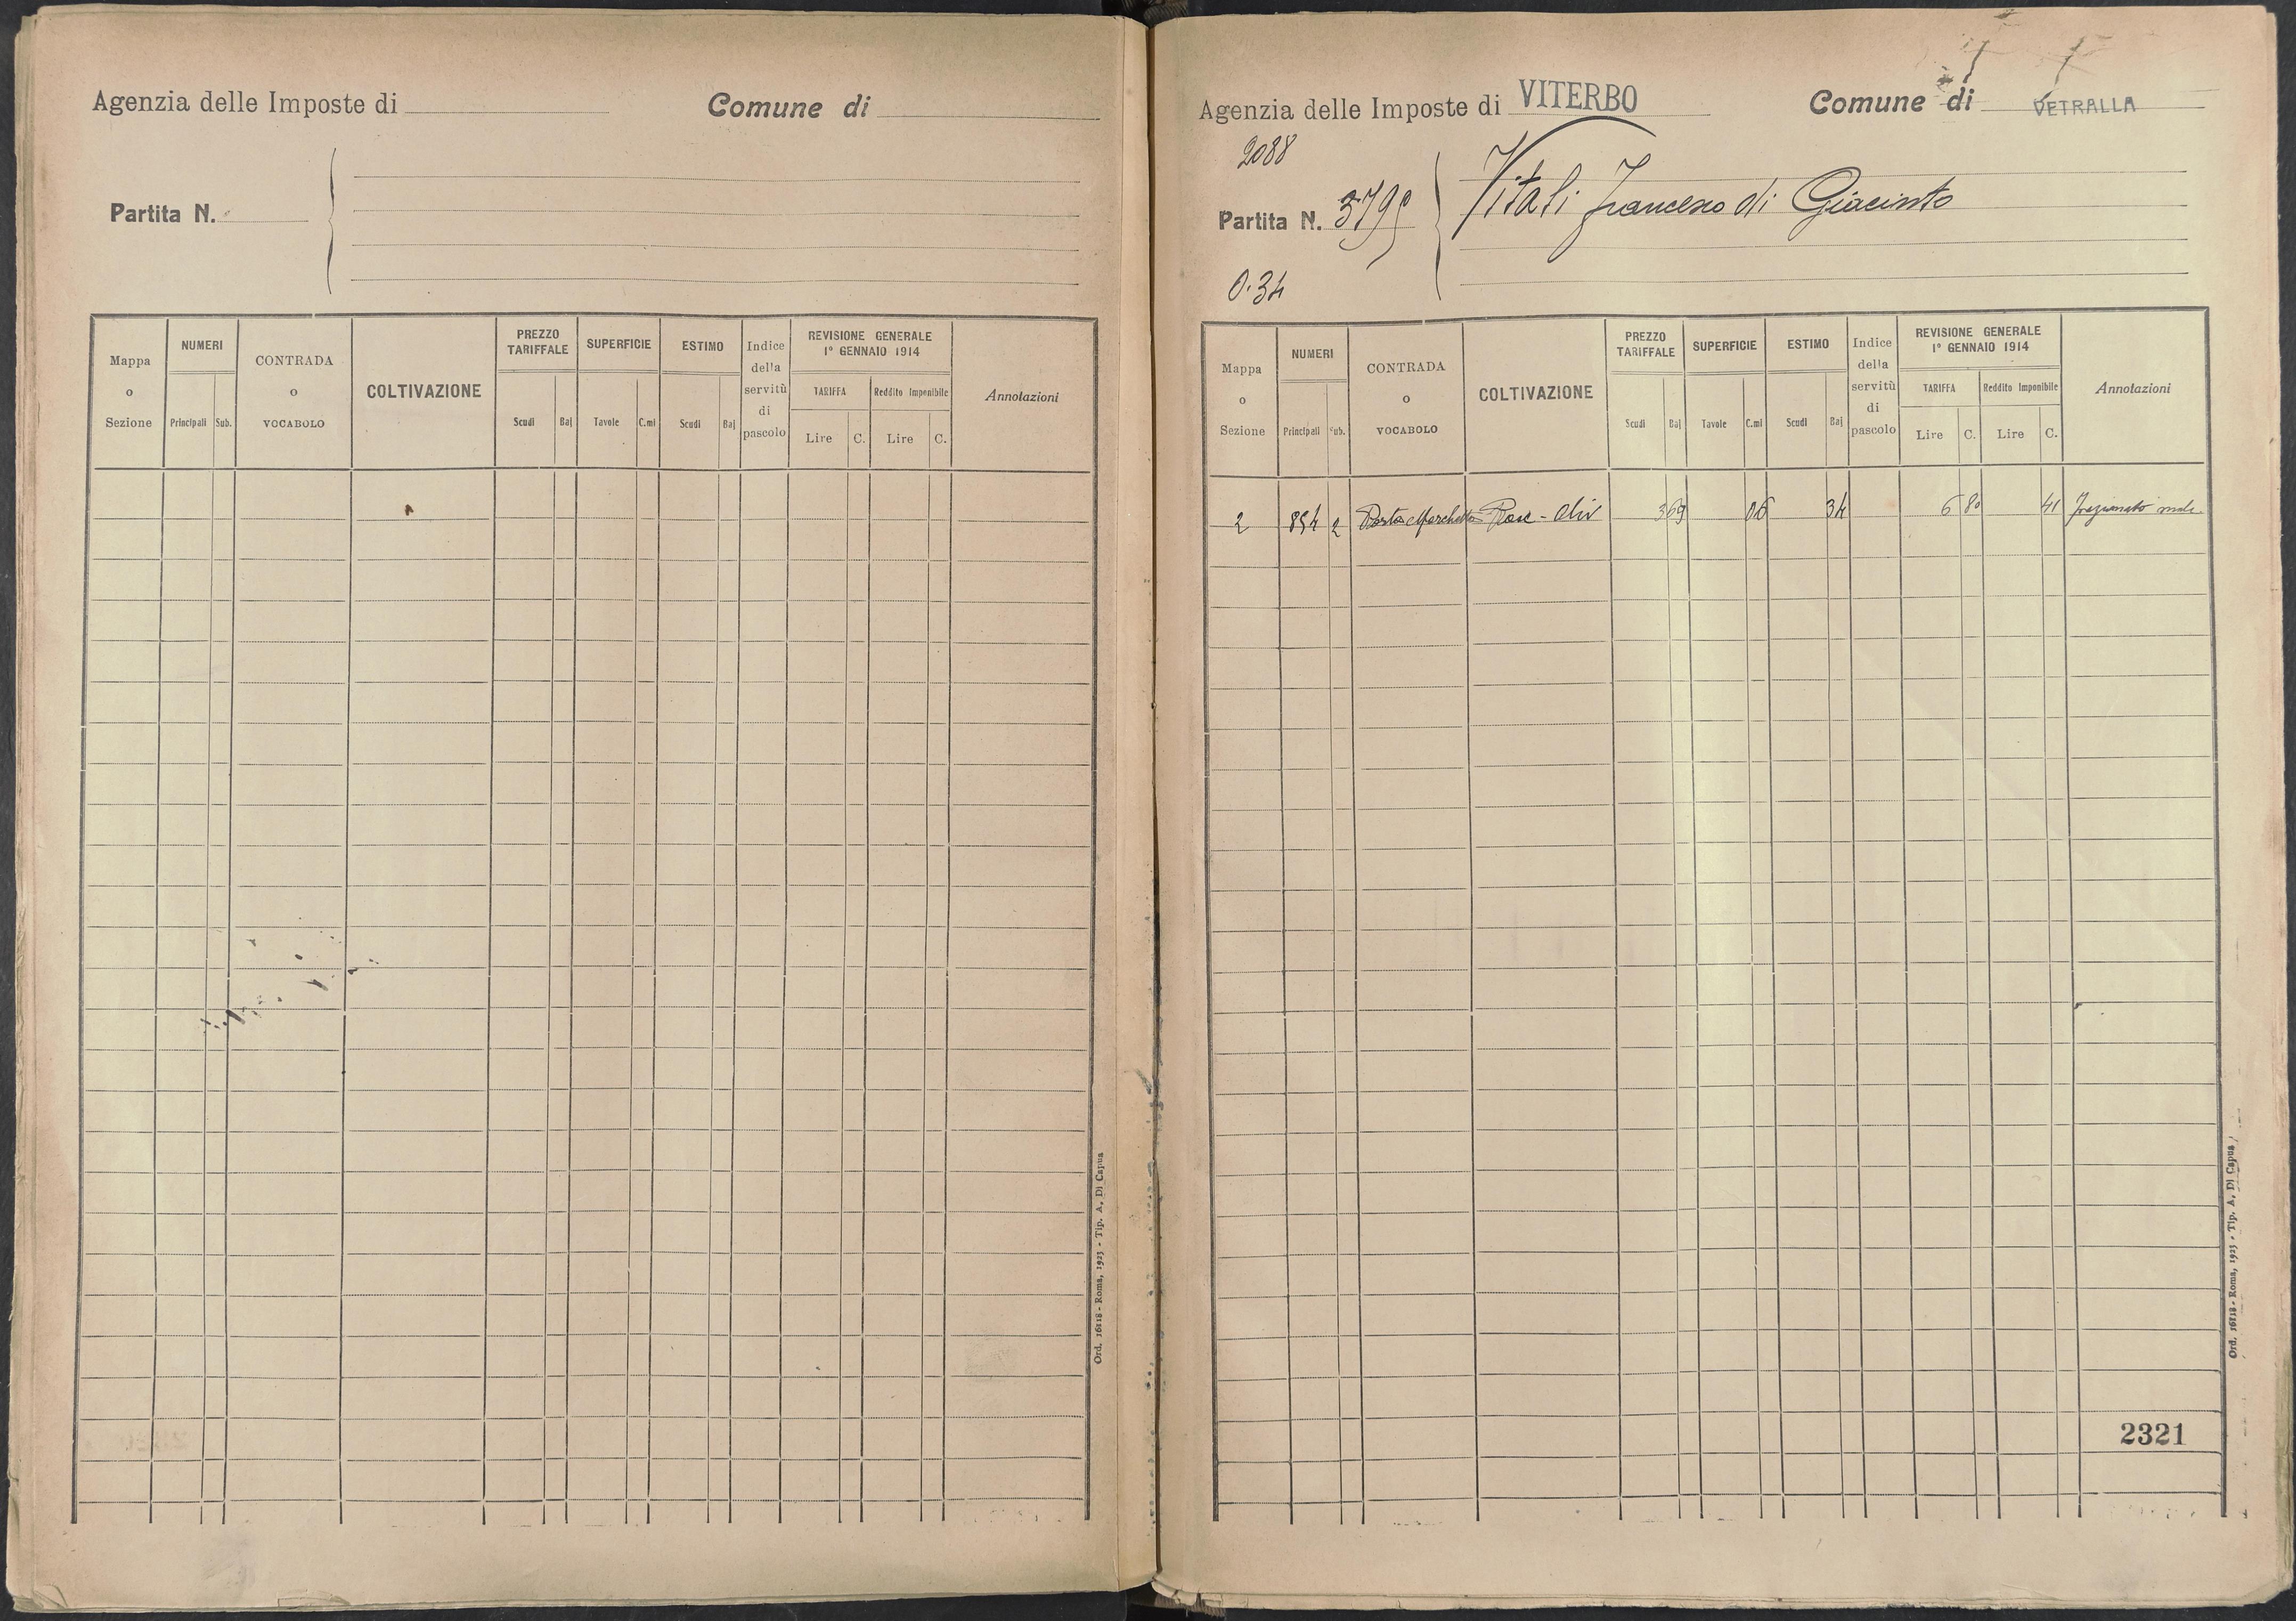 Agenzia delle Imposte di
Comune di
Partita N.
Mappa o Sezione
NUMERI
Principali Sub.
CONTRADA o VOCABOLO
COLTIVAZIONE
PREZZO TARIFFALE
Scudi Baj
SUPERFICIE
Tavole C.mi
ESTIMO
Scudi Baj
Indice della servitù di pascolo
REVISIONE GENERALE
1° GENNAIO 1914
TARIFFA
Lire C.
Reddito Imponibile
Lire C.
Annotazioni
Ord. 16118 - Roma, 1923 - Tip. A. Di Capua
Agenzia delle Imposte di VITERBO
Comune di VETRALLA
2088
Partita N. 3795
Vitali Francesco di Giacinto
0.34
Mappa o Sezione
NUMERI
Principali Sub.
CONTRADA o VOCABOLO
COLTIVAZIONE
PREZZO TARIFFALE
Scudi Baj
SUPERFICIE
Tavole C.mi
ESTIMO
Scudi Baj
Indice della servitù di pascolo
REVISIONE GENERALE
1° GENNAIO 1914
TARIFFA
Lire C.
Reddito Imponibile
Lire C.
Annotazioni
2 894 2 Porta Marchetta Pasc - Oliv 369 06 34 6 80 41
2321
Ord. 16118 - Roma, 1923 - Tip. A. Di Capua